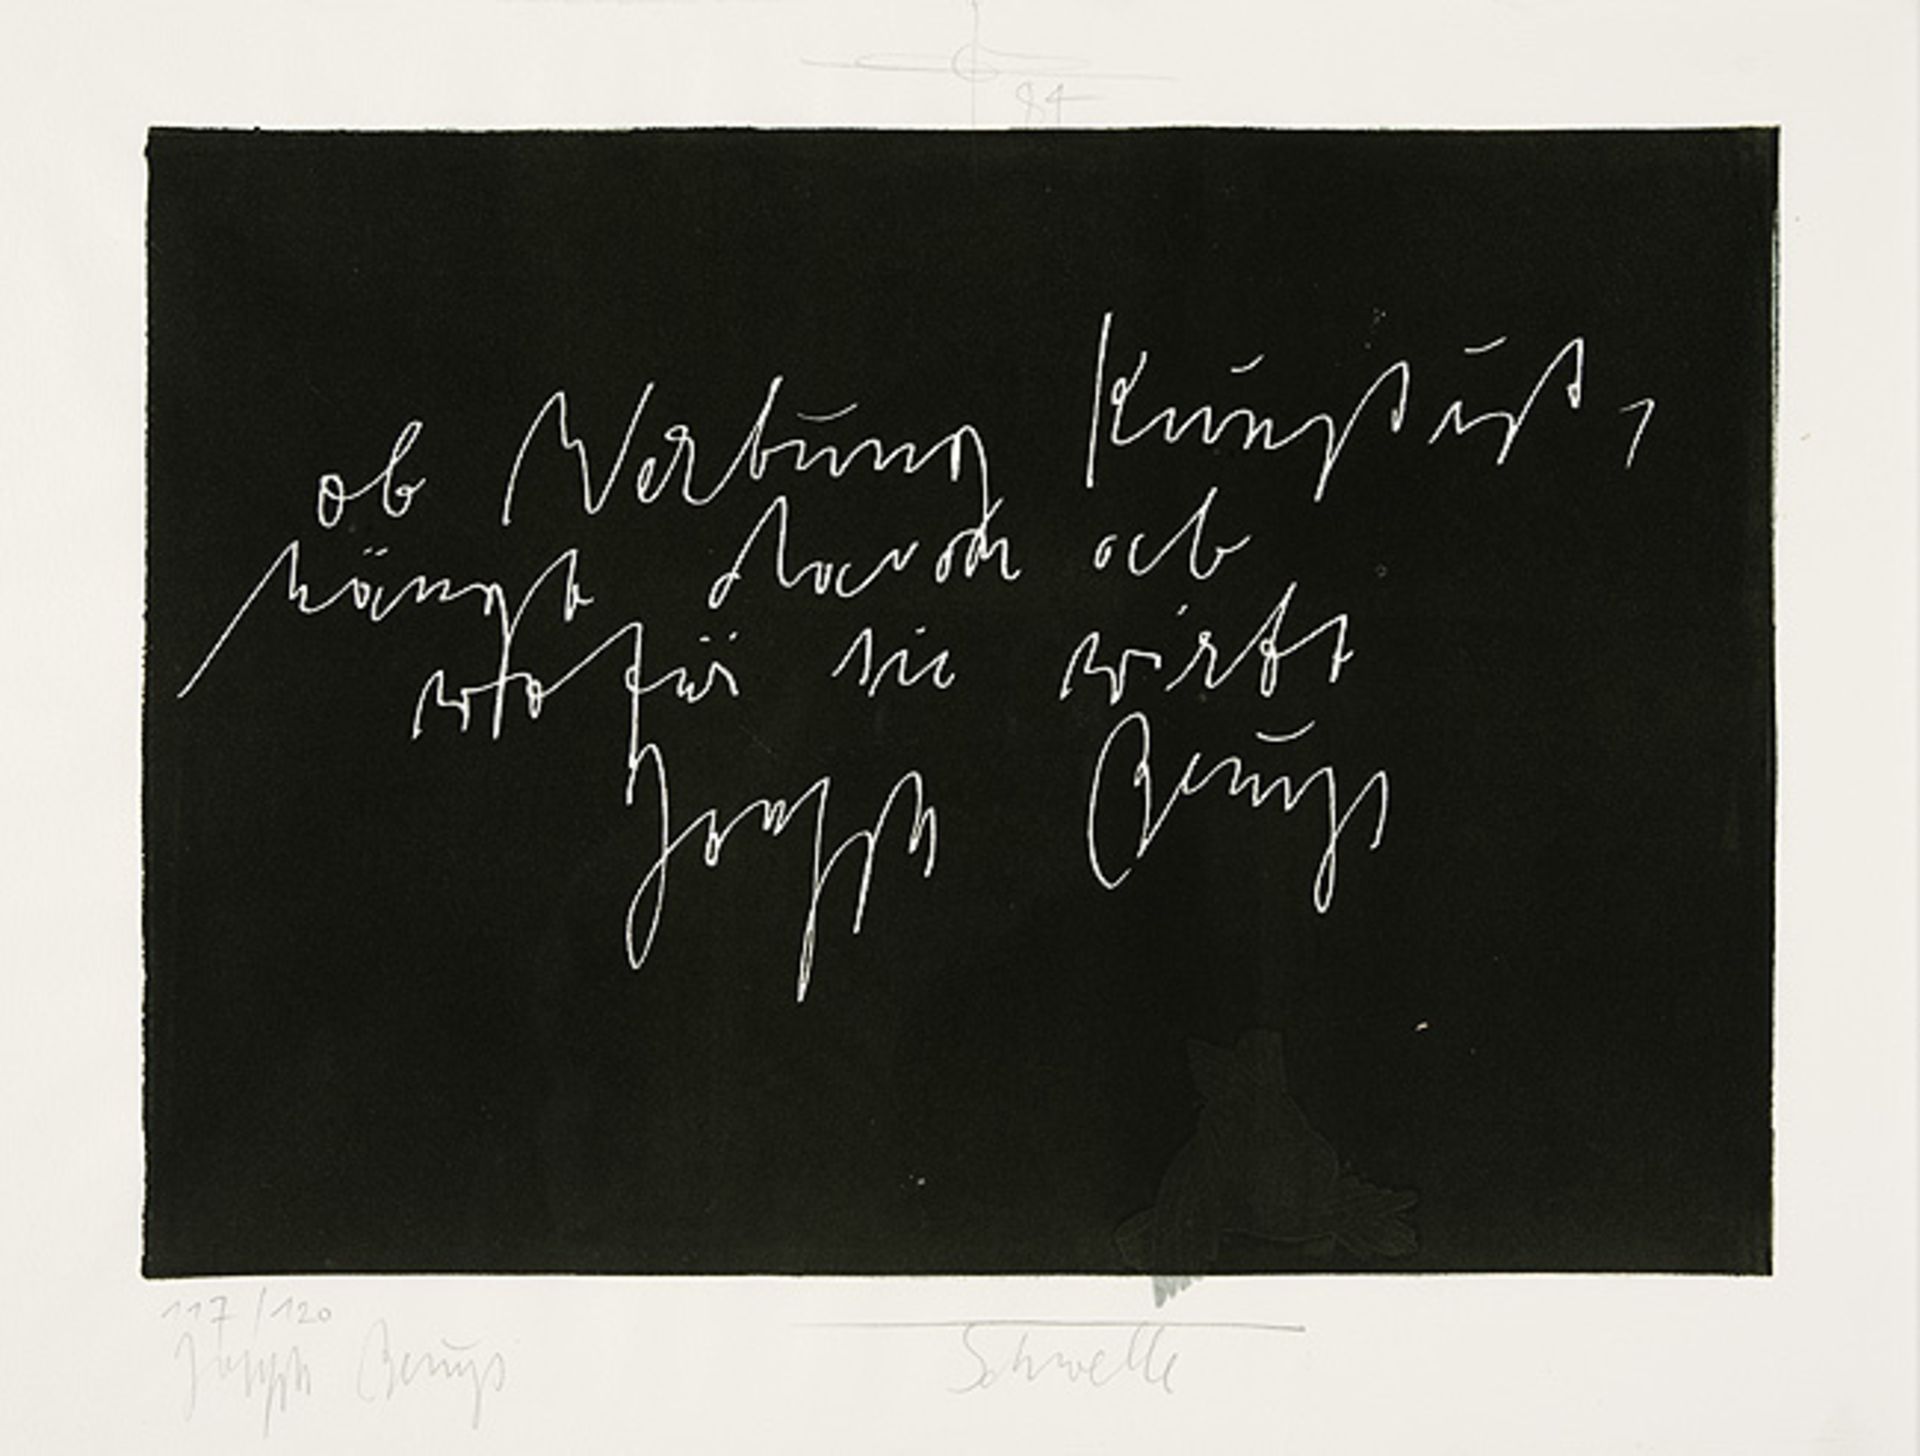 84
ob Werbung Kunst ist,
hängt davon ab
wofür sie wirbt
Joseph Beuys
117/120
Joseph Beuys
Schwelle